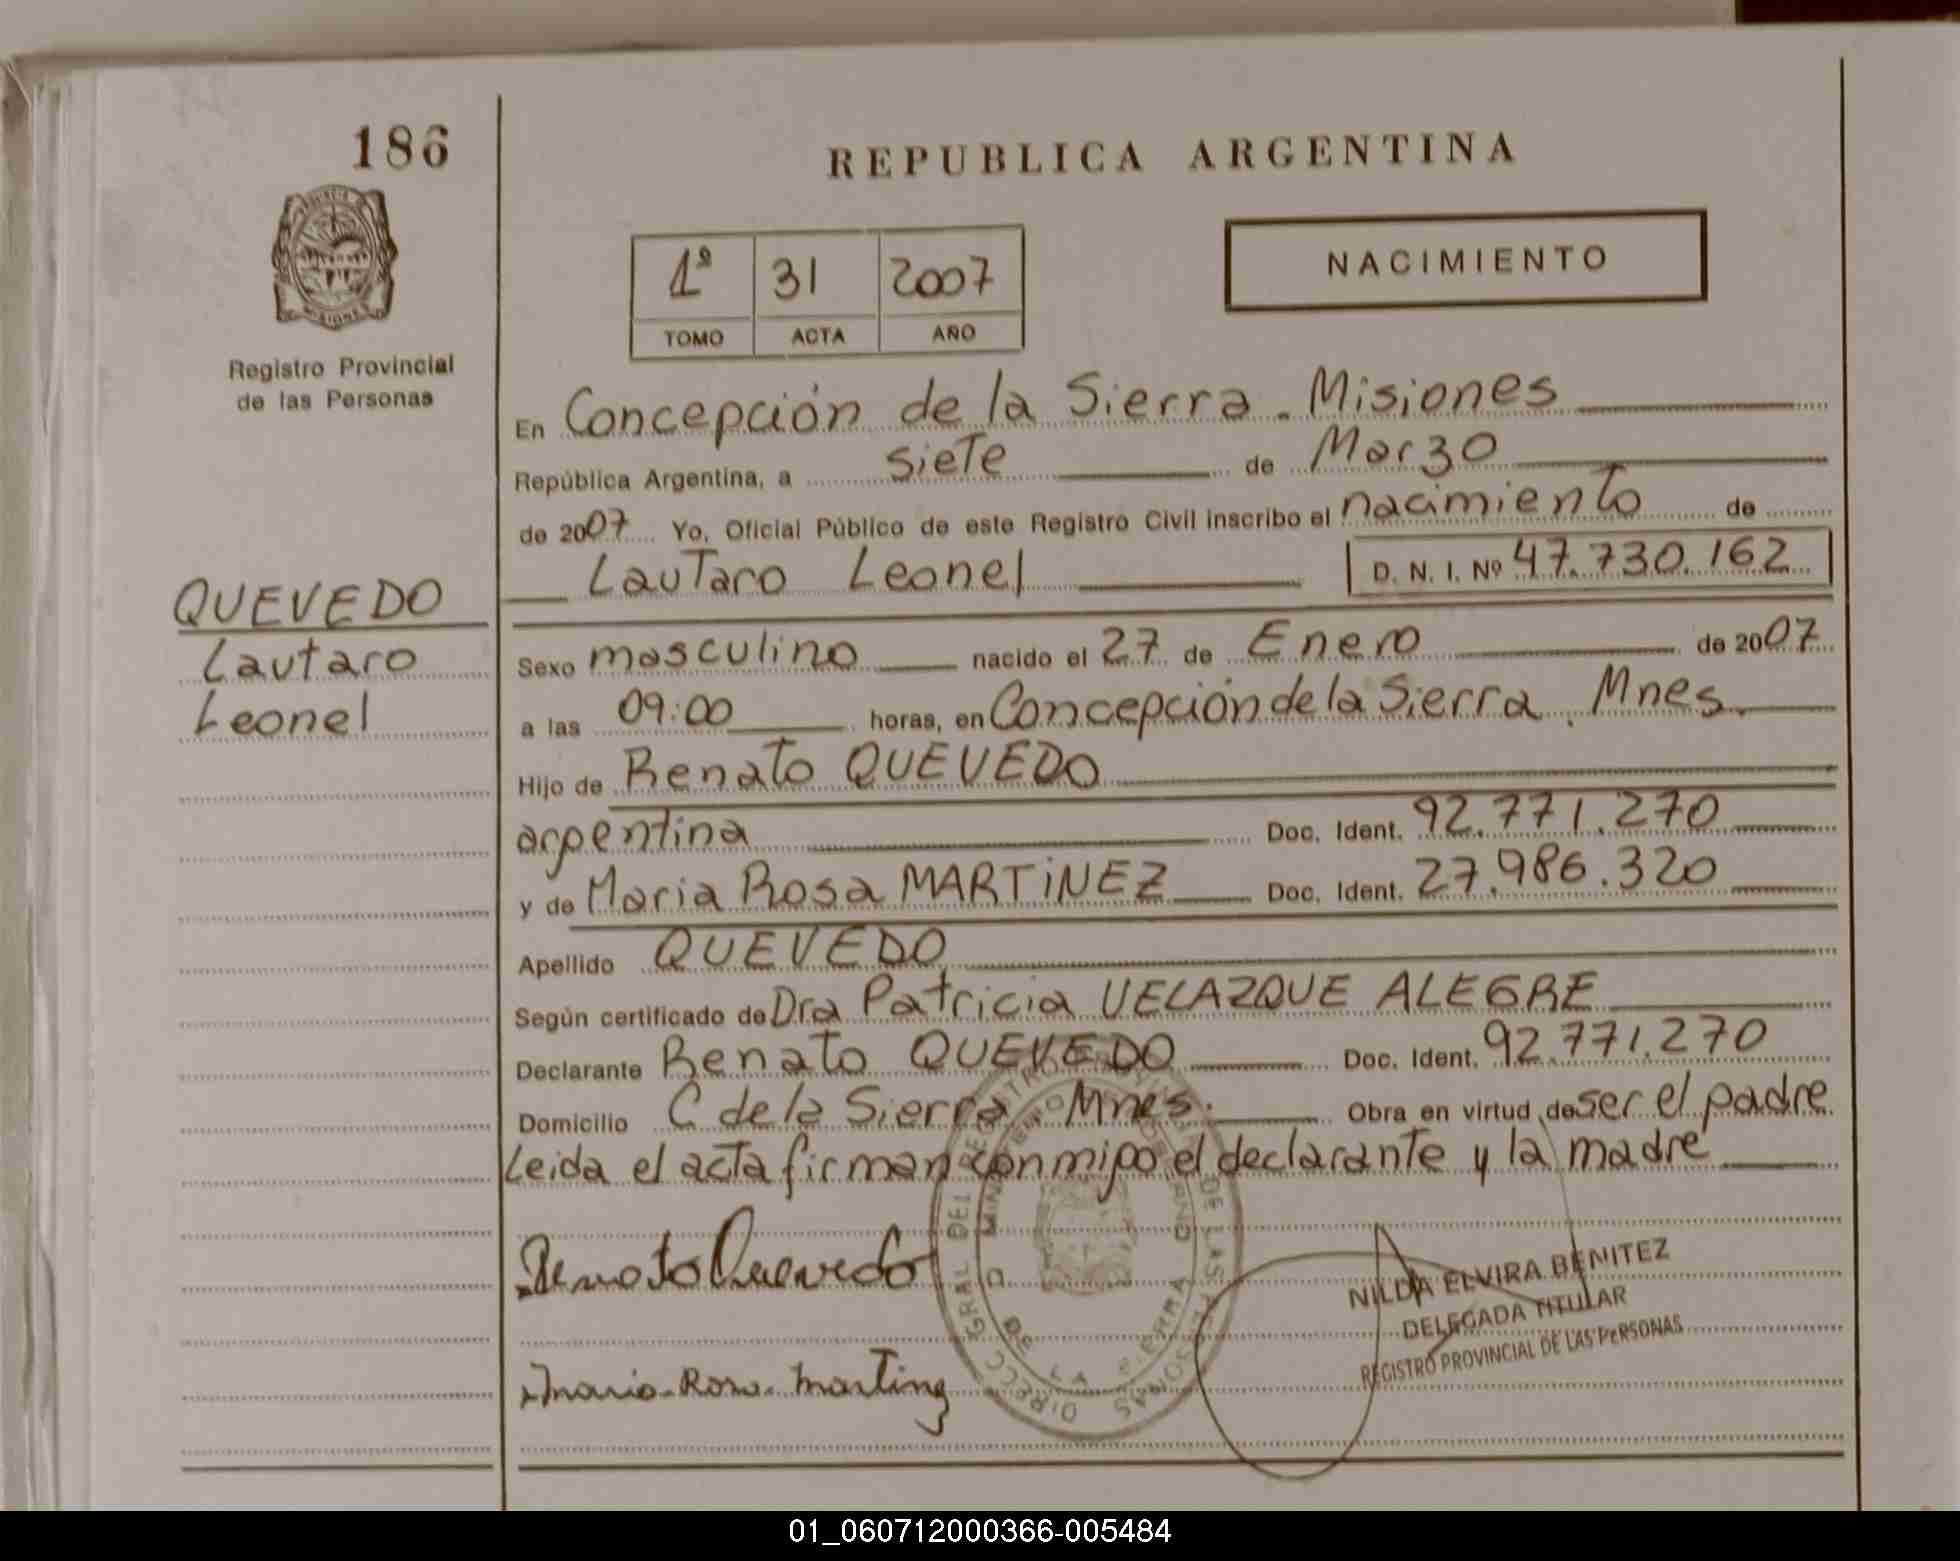 186
REPUBLICA ARGENTINA
1º 31 2007
TOMO ACTA AÑO
NACIMIENTO
MISIONES
Registro Provincial
de las Personas
QUEVEDO
Lautaro
Leonel
En Concepción de la Sierra. Misiones
República Argentina, a siete de Marzo
de 2007 Yo, Oficial Público de este Registro Civil inscribo el nacimiento de
Lautaro Leonel D. N. I. Nº 47.730.162
Sexo masculino nacido el 27 de Enero de 2007
a las 09:00 horas, en Concepción de la Sierra. Mnes.
Hijo de Renato QUEVEDO
argentina Doc. Ident. 92.771.270
y de Maria Rosa MARTiNEZ Doc. Ident. 27.986.320
Apellido QUEVEDO
Según certificado de Dra Patricia VELAZQUE ALEGRE
Declarante Renato QUEVEDO Doc. Ident. 92.771.270
Domicilio C de la Sierra Mnes. Obra en virtud de ser el padre
Leida el acta firman conmigo el declarante y la madre
Renato Quevedo
Maria Rosa Martinez
DIRECC GRAL DEL REGISTRO PROVINCIAL DE LAS PERSONAS
DE LA SIERRA
NILDA ELVIRA BENITEZ
DELEGADA TITULAR
REGISTRO PROVINCIAL DE LAS PERSONAS
01_060712000366-005484